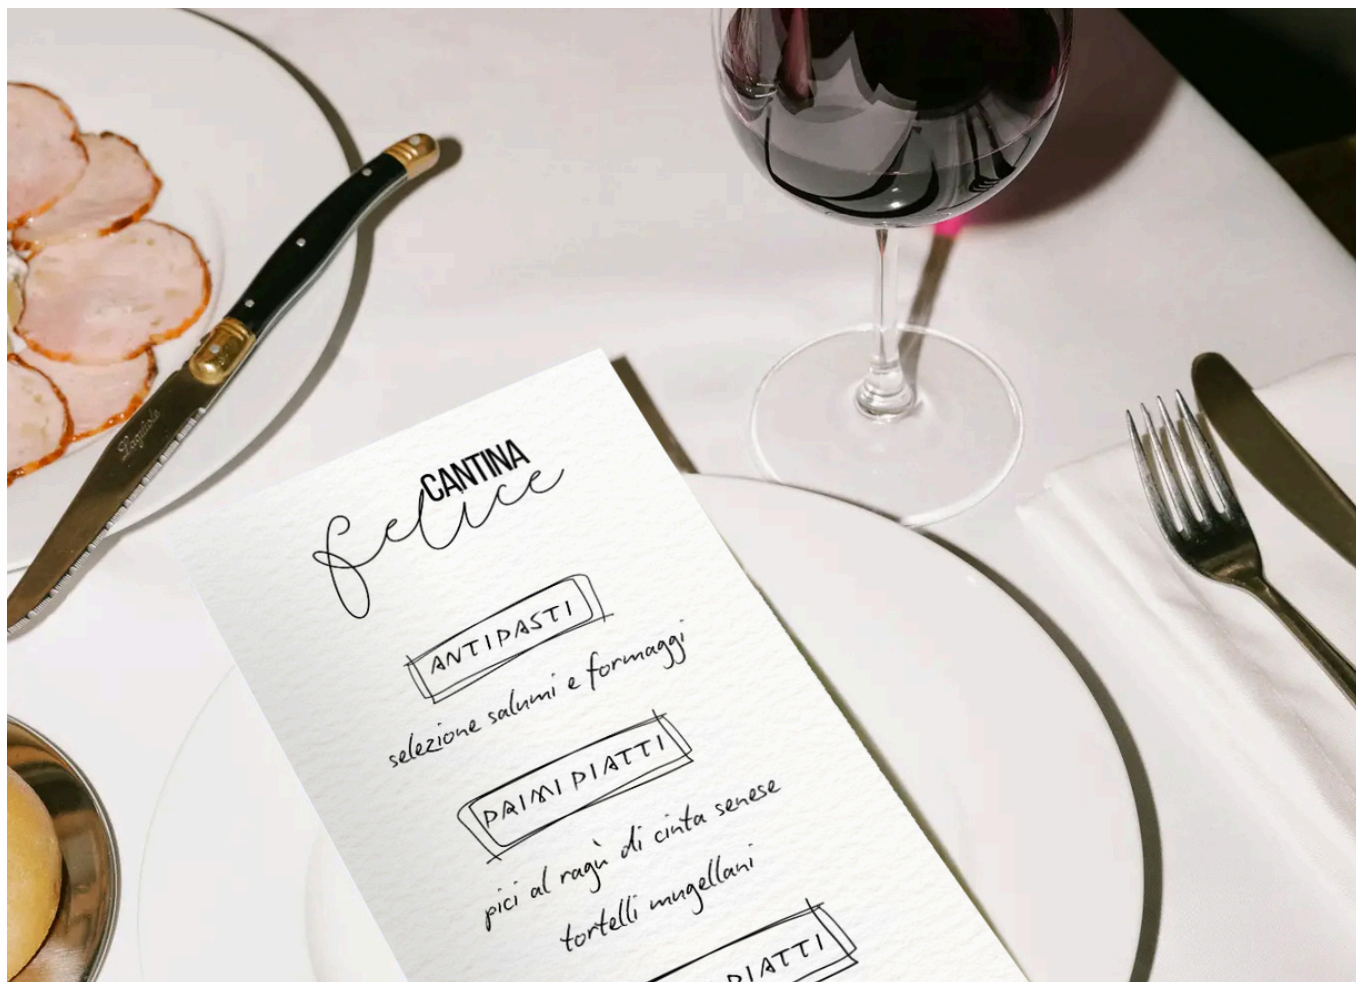 Laguiole
CANTINA
felice
ANTIPASTI
selezione salumi e formaggi
PRIMI PIATTI
pici al ragù di cinta senese
tortelli mugellani
PIATTI